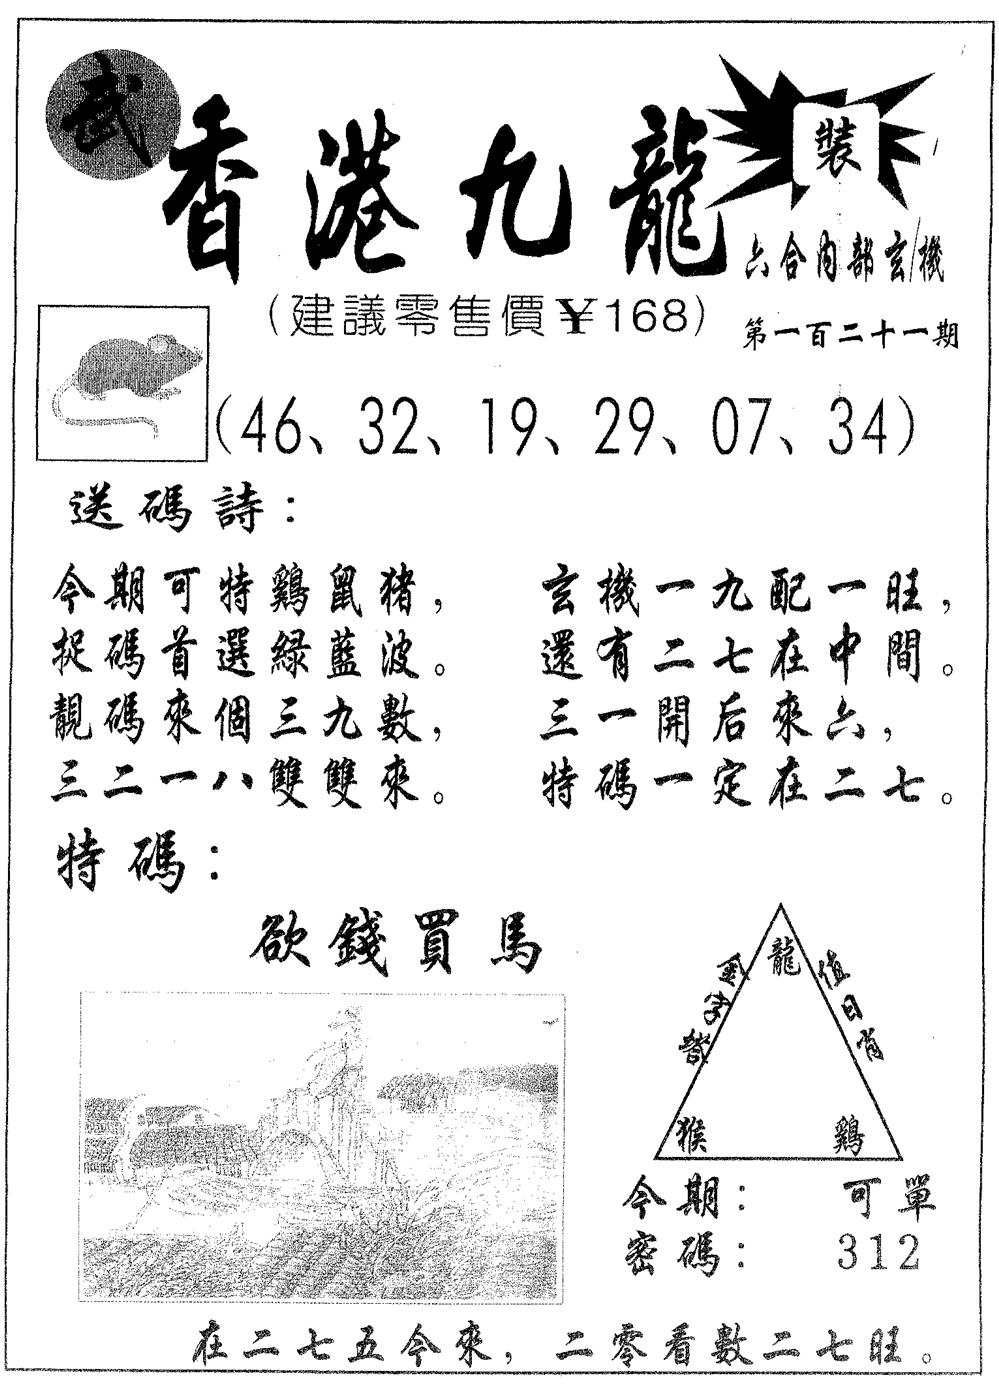 武
香港九龍
裝
六合內部玄機
(建議零售價¥168)
第一百二十一期
(46、32、19、29、07、34)
送碼詩：
今期可特鷄鼠猪，
捉碼首選緑藍波。
靚碼來個三九數，
三二一八雙雙來。
玄機一九配一旺，
還有二七在中間。
三一開后來六，
特碼一定在二七。
特碼：
欲錢買馬
龍
金字塔
值日肖
猴
鷄
今期： 可單
密碼： 312
在二七五今來，二零看數二七旺。